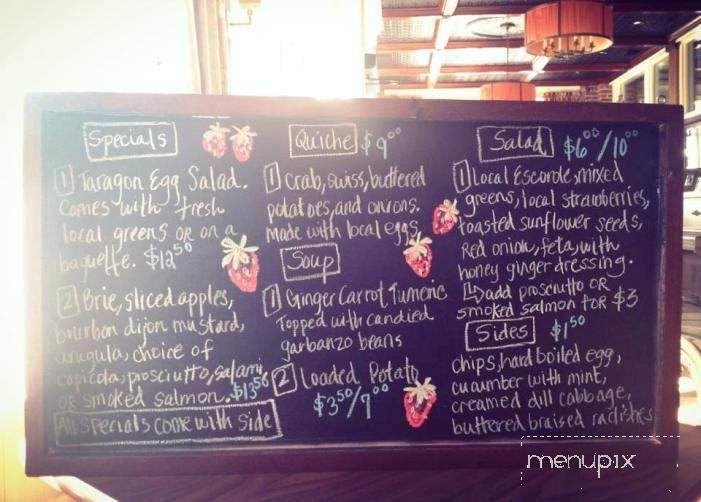 Specials
1 Taragon Egg Salad.
Comes with fresh
local greens OR on a
baguette. $12.50
2 Brie, sliced apples,
bourbon dijon mustard,
arugula, choice of
capicola, prosciutto, salami,
OR smoked salmon. $13.50
All Specials come with side
Quiche $9.00
1 Crab, swiss, buttered
potatoes, and onions.
Made with local eggs
Soup
1 Ginger Carrot Tumeric
Topped with candied
garbanzo beans
2 Loaded Potato
$3.50/7.00
Salad $6.00/10.00
1 Local Escarole, mixed
greens, local strawberries,
toasted sunflower seeds,
Red onion, feta, with
honey ginger dressing.
add prosciutto OR
smoked salmon for $3
Sides $1.50
chips, hard boiled egg,
cucumber with mint,
creamed dill cabbage,
buttered braised radishes
menupix